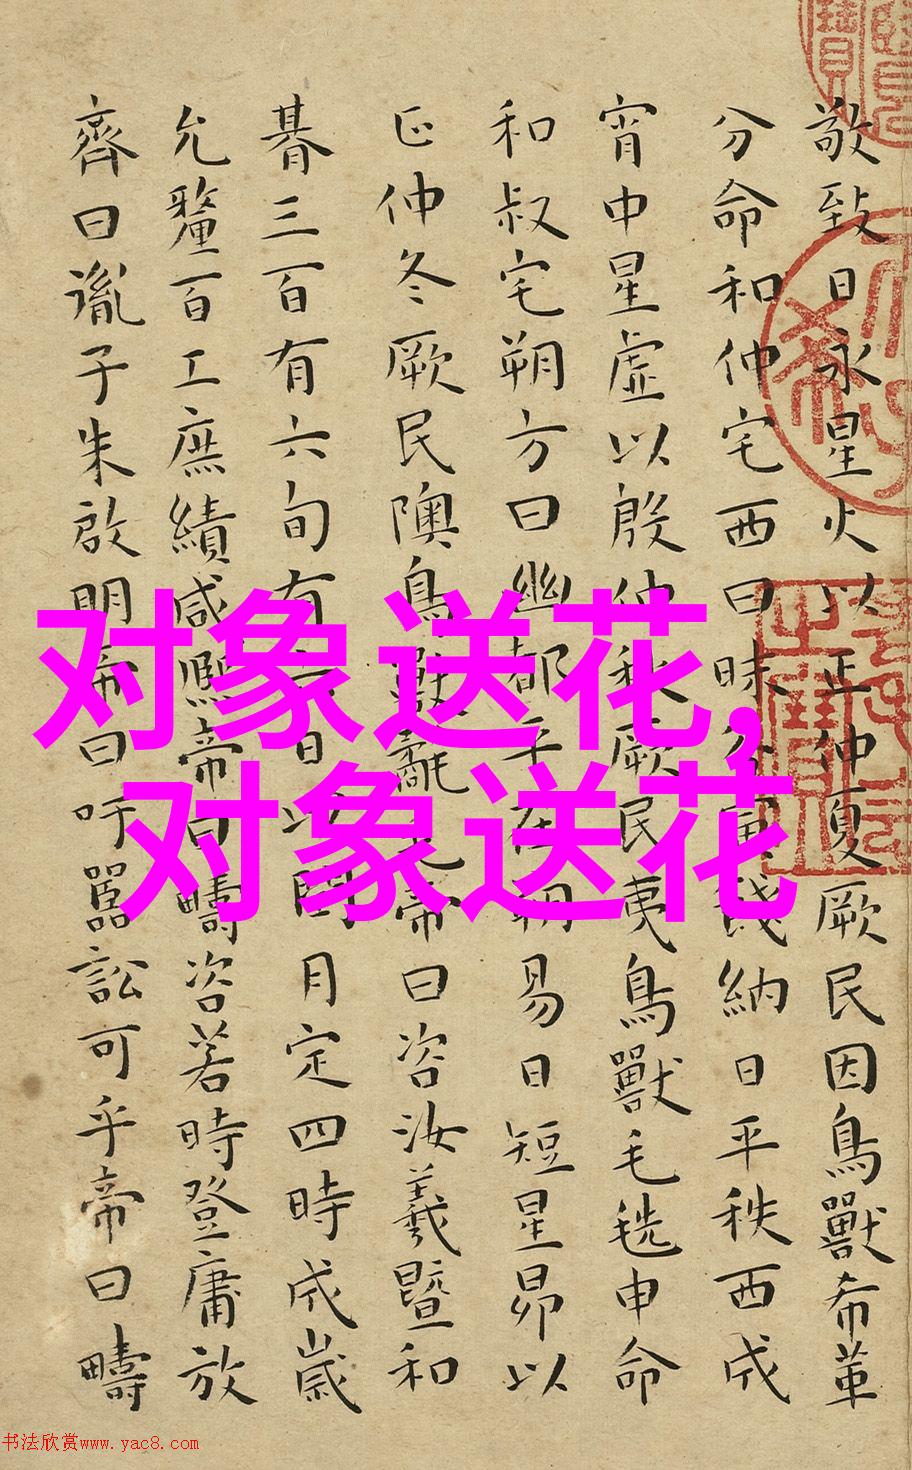 敬致日永星火以正仲夏厥民因鳥獸希革
分命和仲宅西曰昧谷寅餞納日平秩西成
宵中星虛以殷仲秋厥民夷鳥獸毛毨申命
和叔宅朔方曰幽都平在朔易日短星昴以
正仲冬厥民隩鳥獸氄毛帝曰咨汝羲暨和
朞三百有六旬有六日以閏月定四時成歲
允釐百工庶績咸熙帝曰疇咨若時登庸放
齊曰胤子朱啟明帝曰吁嚚訟可乎帝曰疇
对象送花,
对象送花
书法欣赏www.yac8.com